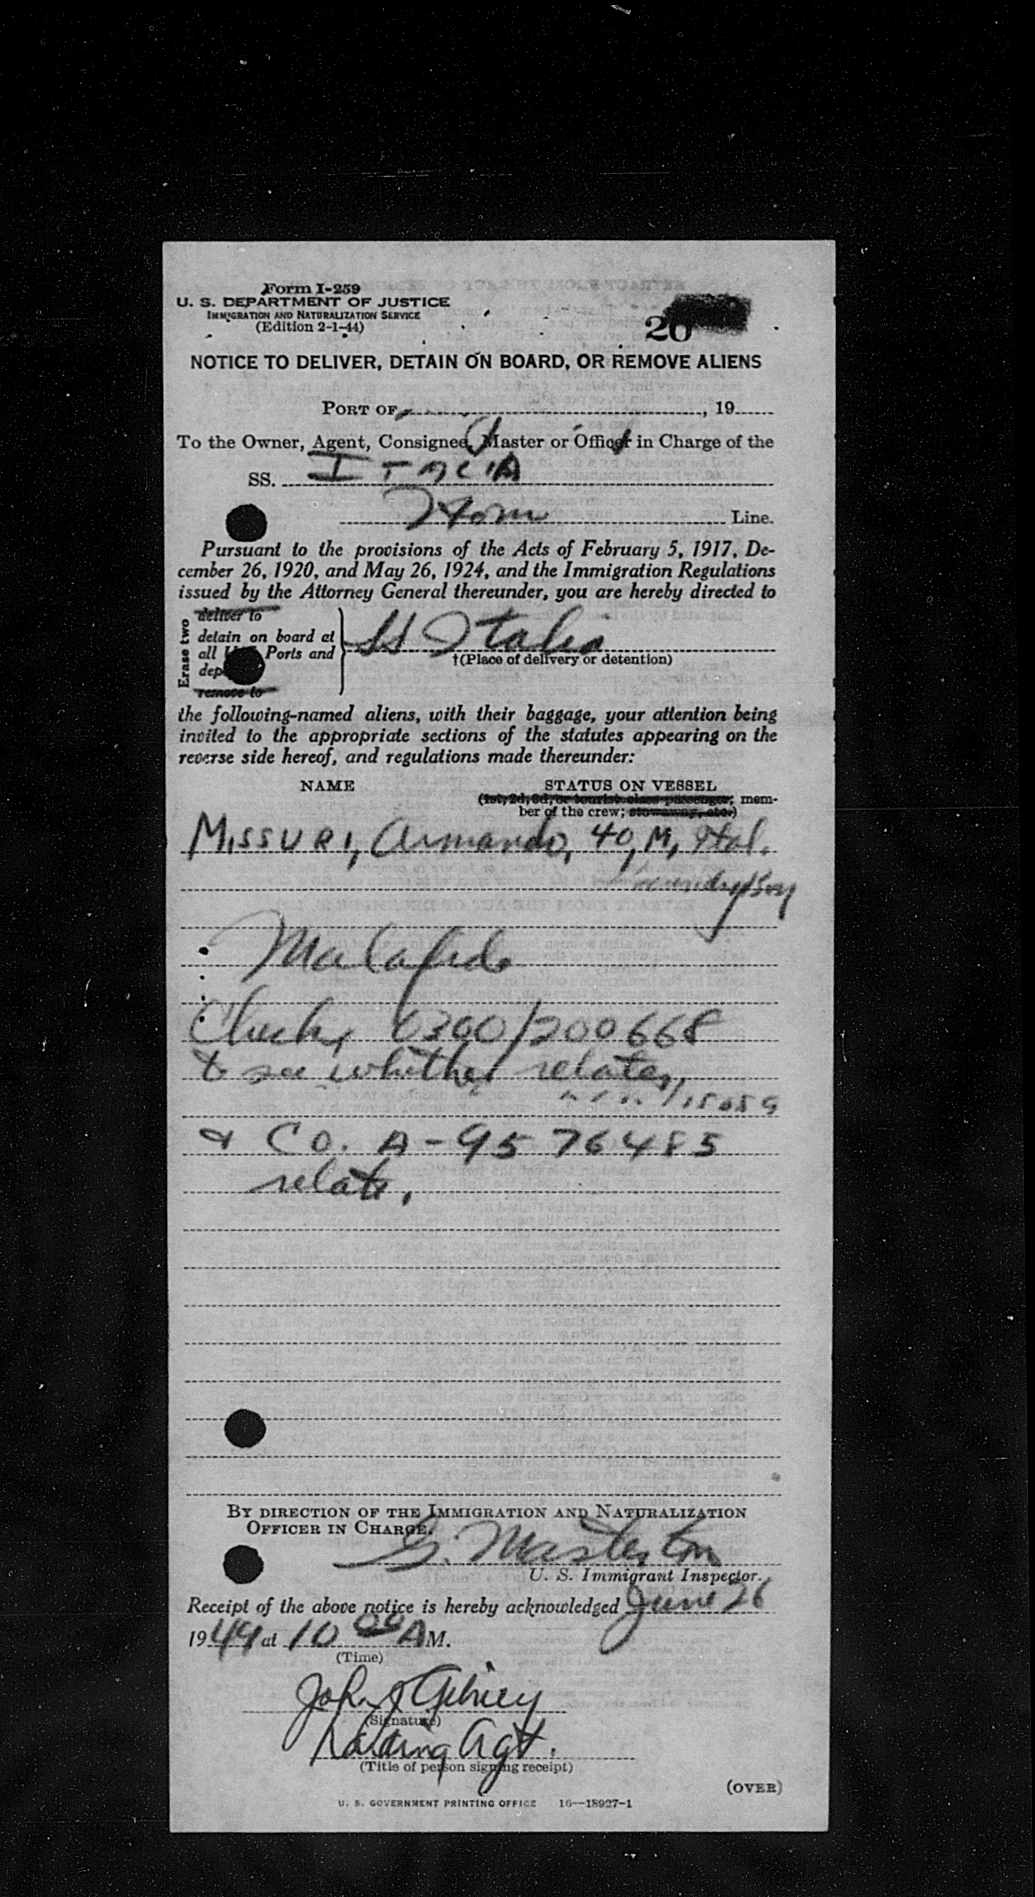 Form I-259
U. S. DEPARTMENT OF JUSTICE
IMMIGRATION AND NATURALIZATION SERVICE
(Edition 2-1-44)
20
NOTICE TO DELIVER, DETAIN ON BOARD, OR REMOVE ALIENS
PORT OF , 19
To the Owner, Agent, Consignee, Master or Officer in Charge of the
SS. ITALIA
Home Line.
Pursuant to the provisions of the Acts of February 5, 1917, De-
cember 26, 1920, and May 26, 1924, and the Immigration Regulations
issued by the Attorney General thereunder, you are hereby directed to
Erase two
deliver to
detain on board at
all Ports and
remove to
SS Italia
†(Place of delivery or detention)
the following-named aliens, with their baggage, your attention being
invited to the appropriate sections of the statutes appearing on the
reverse side hereof, and regulations made thereunder:
NAME STATUS ON VESSEL
(1st, 2d, 3d, or tourist class passenger; mem-
ber of the crew; stowaway, etc.)
MISSURI, Armando, 40, M, Ital.
Laundry Boy
Malafide
Check 0300/200668
to see whether relates,
" " " " /15059
& CO. A-9576485
relate.
BY DIRECTION OF THE IMMIGRATION AND NATURALIZATION
OFFICER IN CHARGE.
G. Masterton
U. S. Immigrant Inspector.
Receipt of the above notice is hereby acknowledged June 26
1949 at 10 00 A M.
(Time)
John J Gibney
(Signature)
Landing Agt.
(Title of person signing receipt)
(OVER)
U. S. GOVERNMENT PRINTING OFFICE 16—18927-1